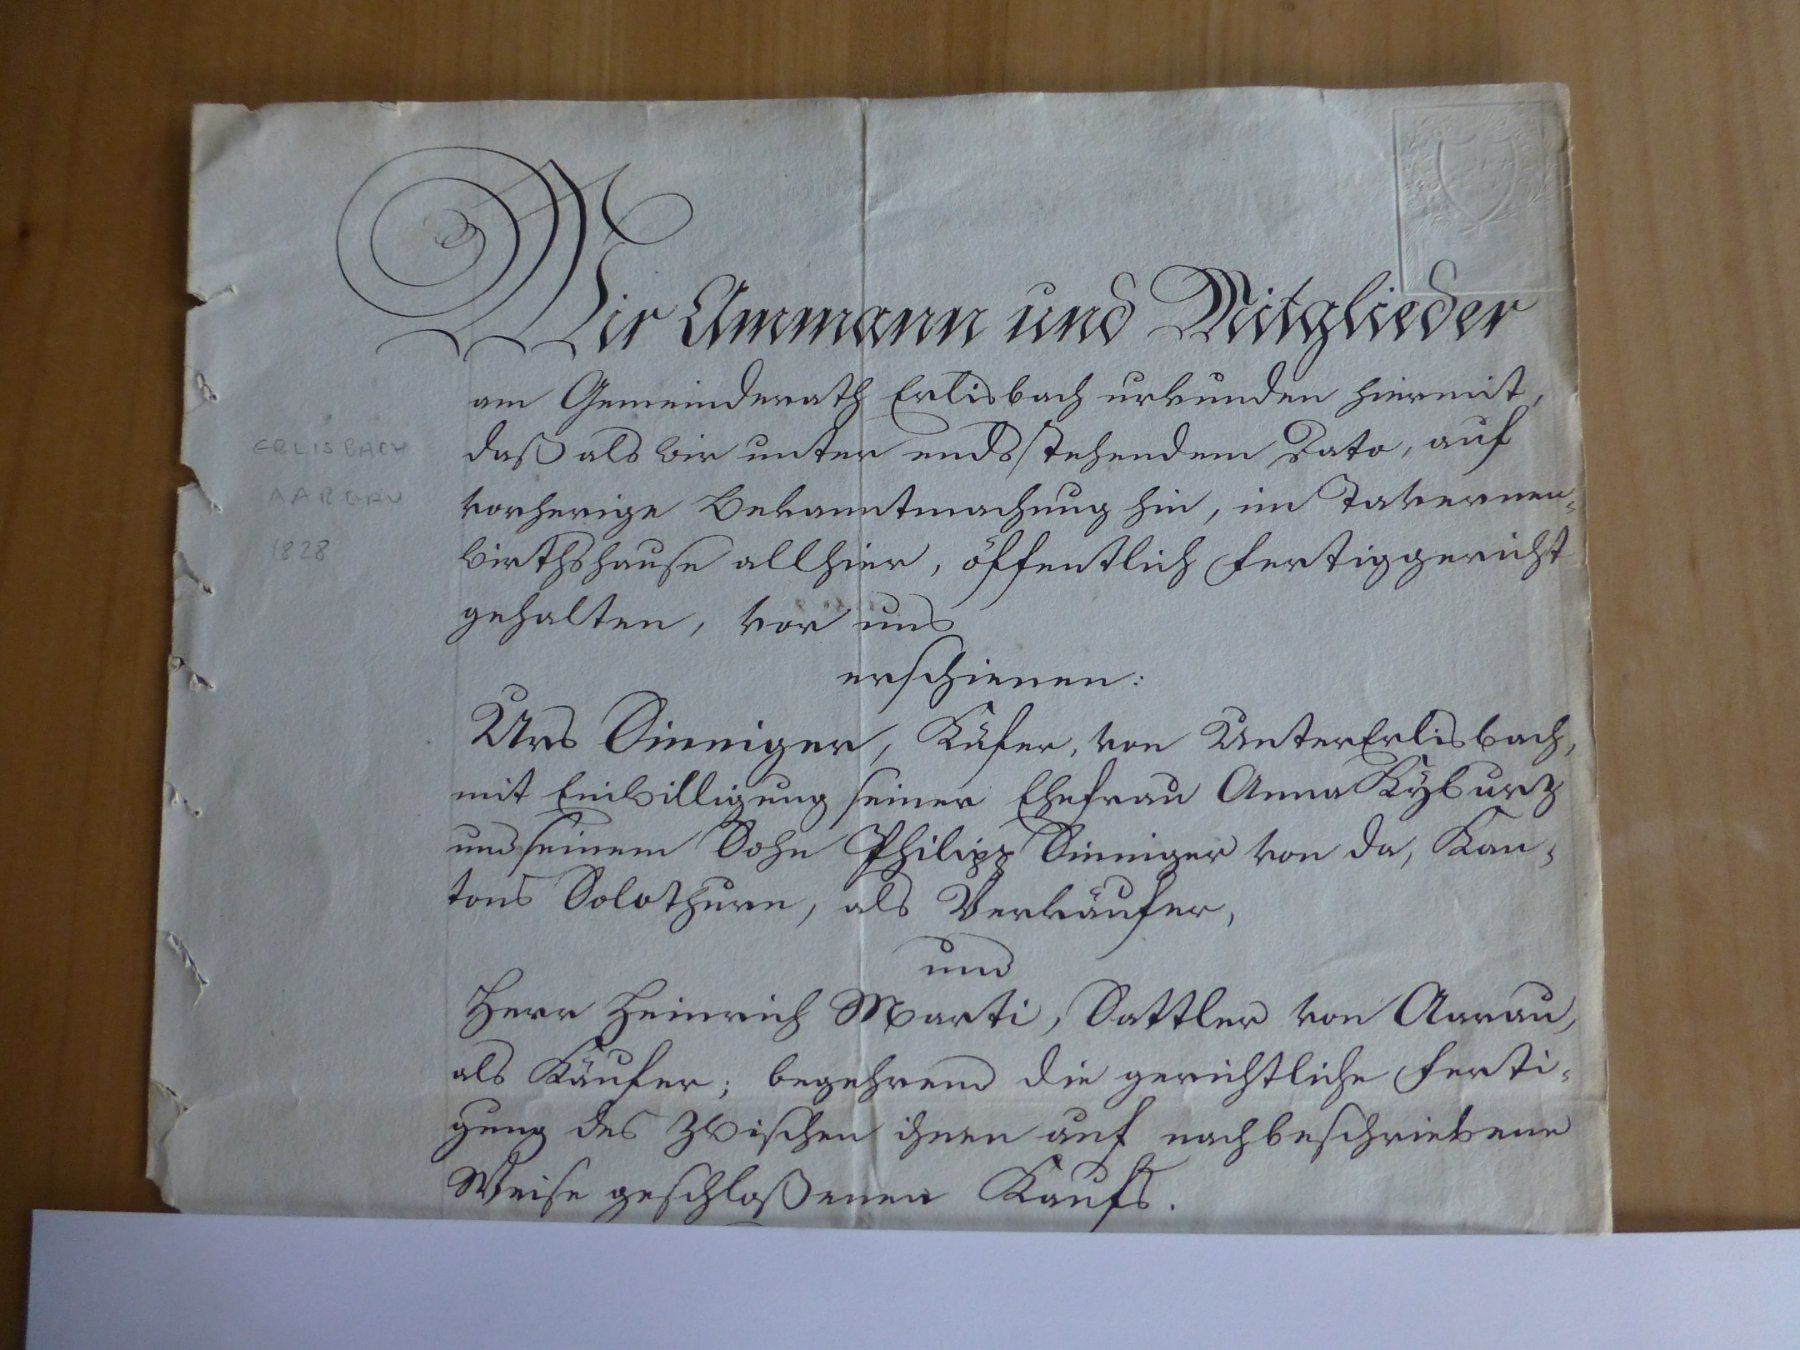 Wir Ammann und Mitglieder
am Gemeinderath Erlisbach urkunden hiermit,
daß als wir unter endsstehendem Dato, auf
vorherige Bekanntmachung hin, im Tavernen-
wirthshause allhier, öffentlich Fertiggericht
gehalten, vor uns
erschienen:
Urs Sinniger, Küfer, von UnterErlisbach,
mit Einwilligung seiner Ehefrau Anna Kyburz
und seinem Sohn Philipp Sinniger von da, Kan-
tons Solothurn, als Verkäufer,
und
Herr Heinrich Marti, Sattler von Aarau,
als Käufer; begehrend die gerichtliche Ferti-
gung des zwischen ihnen auf nachbeschriebene
Weise geschloßenen Kaufs.
ERLISBACH
AARGAU
1828